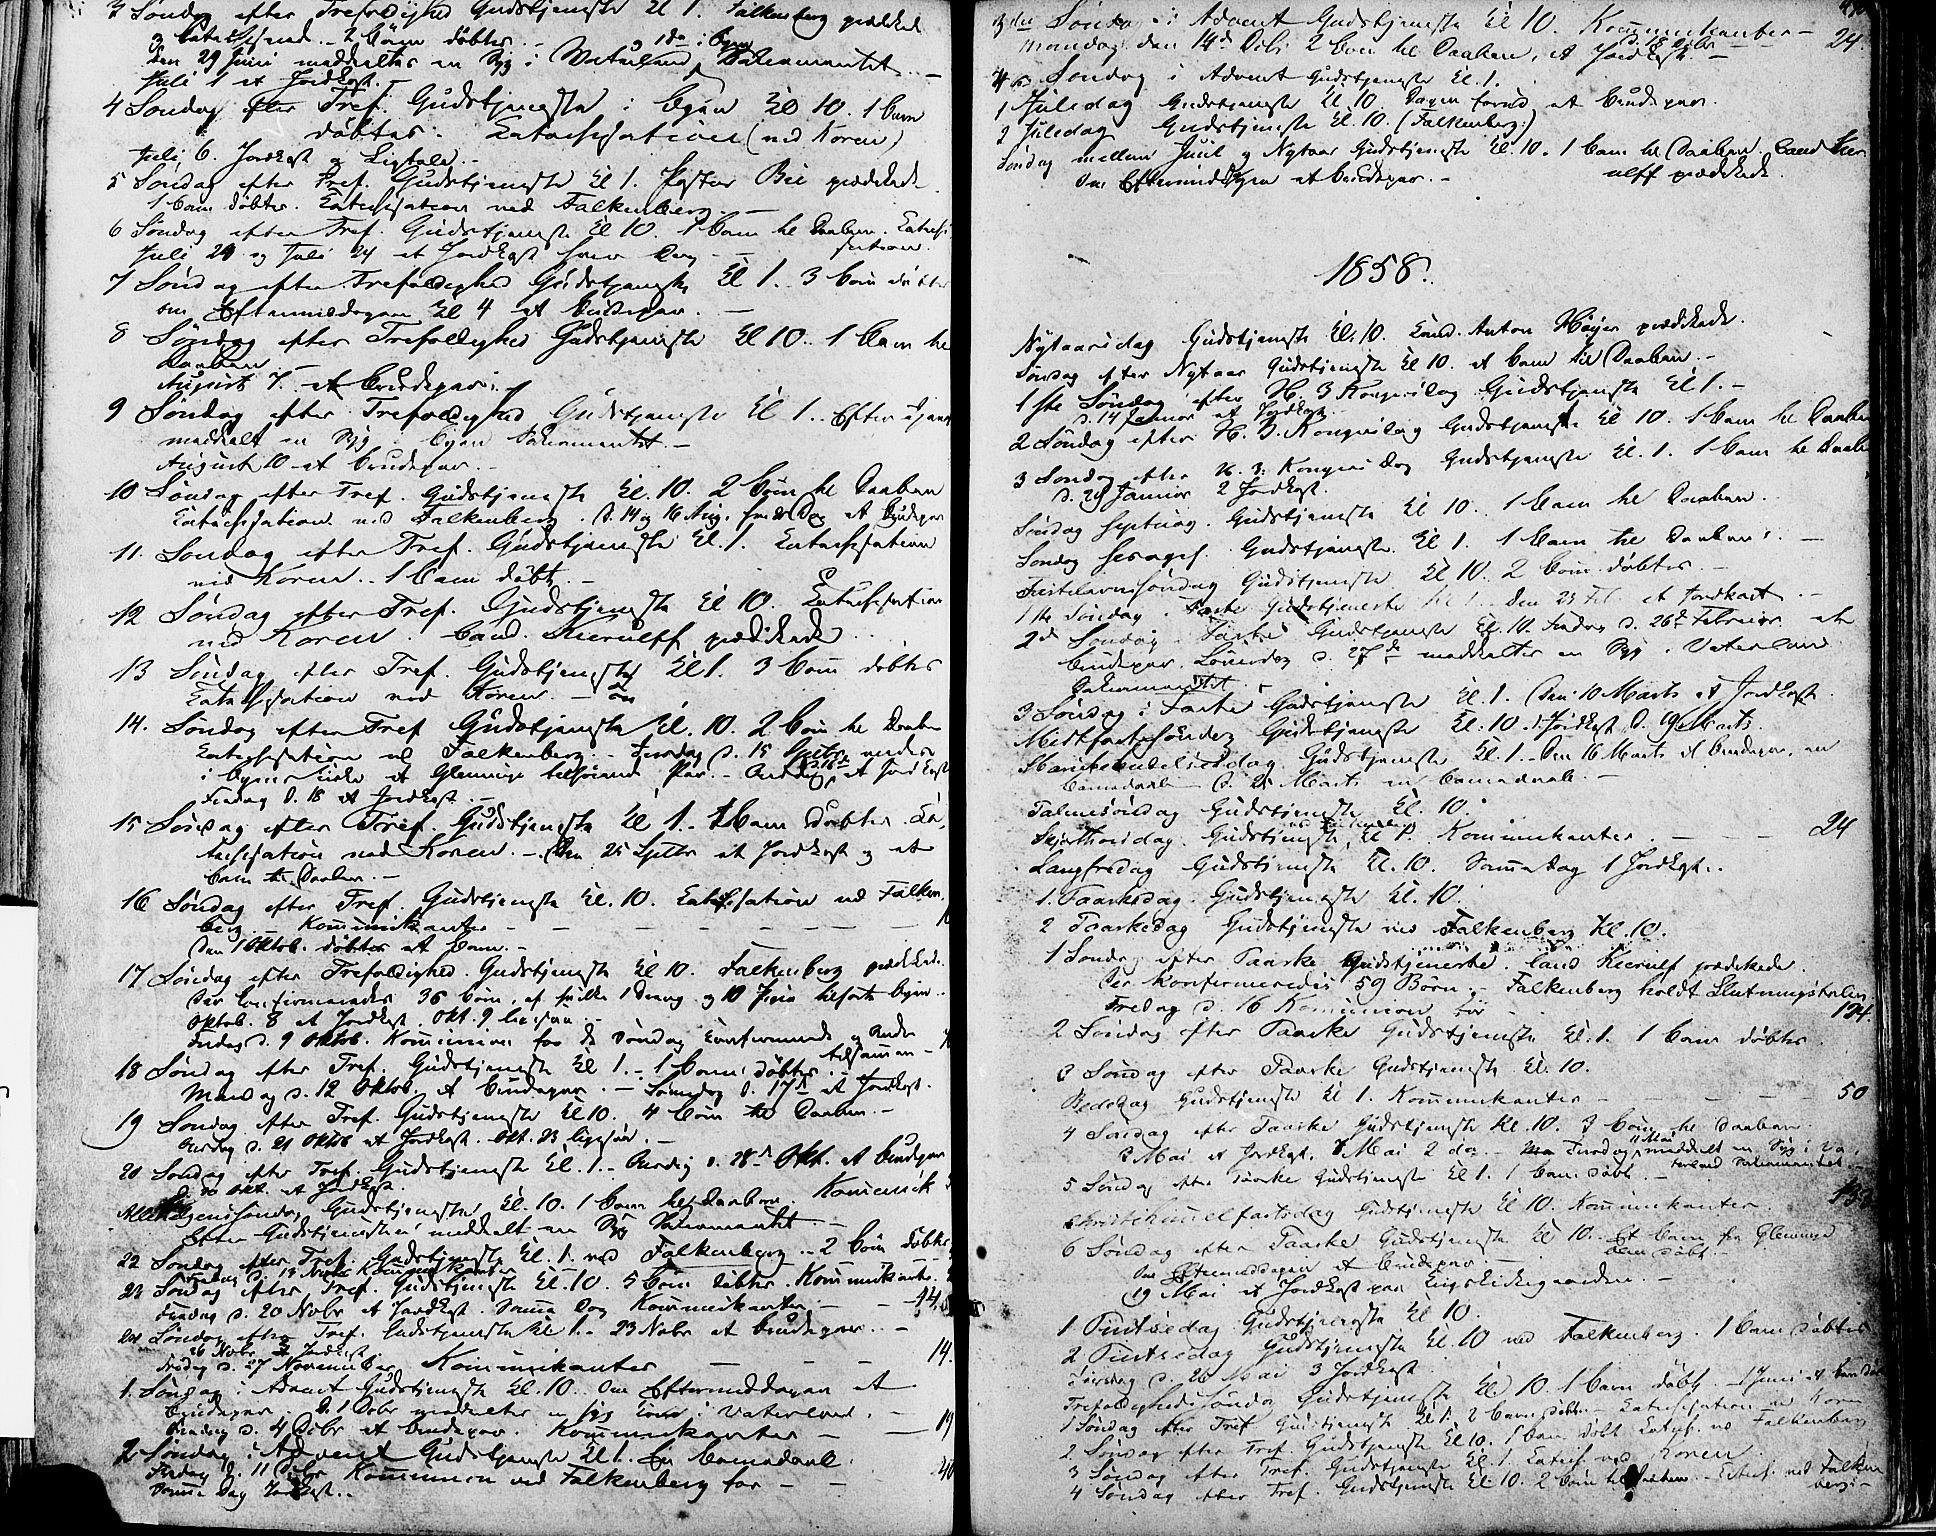 3 Søndag efter Trefoldighed Gudstjeneste Kl 1. Falkenberg prædikede
3 Catechisand. - 2 Børn døbtes. -
Den 29 Juni meddeeltes en Syg i Vaterland Sakramentet. -
Juli 1 et Jordkast. -
4 Søndag efter Tref. Gudstjeneste i Byen Kl 10. 1 Barn
døbtes. Katechisation (ved Koren)
Juli 6. Jordkast og Ligtale. -
5 Søndag efter Tref. Gudstjeneste Kl 1. Pastor Bie prædikede
1 Barn døbtes. Katechisation ved Falkenberg. -
6 Søndag efter Tref. Gudstjeneste Kl 10. 1 Barn til Daaben. Katechi-
sation.
Juli 20 og Juli 24 et Jordkast hver Dag -
7 Søndag efter Trefoldighed Gudstjeneste Kl 1. 3 Børn døbtes
om Eftermiddagen Kl 4 et Brudepar. -
8 Søndag efter Trefoldighed Gudstjeneste Kl 10. 1 Barn til
Daaben
August 7. et Brudepar. -
9 Søndag efter Trefoldighed Gudstjeneste Kl 1. Efter Tjenesten
meddeelt en Syg i Byen Sakramentet. -
August 10 et Brudepar. -
10 Søndag efter Tref. Gudstjeneste Kl. 10. 2 Børn til Daaben
Katechisation ved Falkenberg. D. 14 og 16 Aug. hver Dag et Brudepar
11. Søndag efter Tref. Gudstjeneste Kl. 1. Katechisation
ved Koren. - 1 Barn døbt. -
12 Søndag efter Tref. Gudstjeneste Kl 10. Katechisation
ved Koren. Cand. Kierulff prædikede.
13 Søndag efter Tref. Gudstjeneste Kl 1. 3 Børn døbtes
Katechisation ved Koren. -
14. Søndag efter Tref Gudstjeneste Kl. 10. 2 Børn til Daaben
Katechisation ved Falkenberg. - Tirsdag d. 15 Septbr viedes
i Byens Kirke et Glemmige tilhørende Par. - Onsdag et Jordkast
Fredag d. 18 et Jordkast. -
15 Søndag efter Tref. Gudstjeneste Kl 1. - 1 Barn døbtes. Ka-
techisation ved Koren. - Den 25 Septbr et Jordkast og et
Barn til Daaben. -
16 Søndag efter Tref. Gudstjeneste Kl. 10. Katechisation ved Falken-
berg. - Kommunikanter - - - - -
Den 1 Oktob. døbtes et Barn. -
17 Søndag efter Trefoldighed. Gudstjeneste Kl 10. Falkenberg prædikede.
Der confirmeredes 36 Børn, af hvilke 1 Dreng og 10 Piger tilhørte Byen.
Oktob. 8 et Jordkast. Okt. 9 ligesaa. -
Fredag d. 9 Oktob. Kommunion for de Søndag Confirmerede og Andre
tilsammen -
18 Søndag efter Tref. Gudstjeneste Kl 1. - 1 Barn døbtes. -
Mandag d. 12 Oktob. et Brudepar. - Løverdag d. 17d et Jordkast.
19 Søndag efter Tref. Gudstjeneste Kl 10. 4 Børn til Daaben. -
Onsdag d. 21 Oktob et Jordkast. Okt. 23 ligesaa. -
20 Søndag efter Tref. Gudstjeneste Kl. 1. - Onsdag d. 28d Okt. et Brudepar
d. 30 Okt. et Jordkast.
Allehelgenssøndag Gudstjeneste Kl. 10. 1 Barn til Daaben. Kommunik
Efter Gudstjenesten meddeelt en Syg Sakramentet -
22 Søndag efter Tref. Gudstjeneste Kl. 1. ved Falkenberg. - 2 Børn døbtes
Fredag d. 13 Novbr Kommunikanter
23 Søndag efter Tref. Gudstjeneste Kl. 10. 5 Børn døbtes. Kommunikanter.
Fredag d. 20 Nobr et Jordkast. Samme Dag Kommunikanter - - 14.
24 Søndag efter Tref. Gudstjeneste Kl 1. - 23 Nobr et Brudepar. -
26 Nobr et Jordkast.
Fredag d. 27 November Kommunikanter - - - 14.
1. Søndag i Advent Gudstjeneste Kl. 10. Om Eftermiddagen et
Brudepar. D. 1 Debr meddeeltes en syg Kone i Vaterland.
Fredag d. 4 Debr et Brudepar. Kommunikanter - - 19
2 Søndag i Advent Gudstjeneste Kl 1. En Barnedaab.
Fredag d. 11 Debr Kommunion ved Falkenberg for - - 40
Samme Dag Jordkast. -
3die Søndag i Advent Gudstjeneste Kl 10. Kommunikanter - 24.
Mandag den 14d Debr 2 Børn til Daaben, et Jordkast. -
4 Søndag i Advent Gudstjeneste Kl. 1.
1 Juledag Gudstjeneste Kl. 10. Dagen forud et Brudepar.
2 Juledag Gudstjeneste Kl. 10. (Falkenberg.)
Søndag mellem Juul og Nytaar Gudstjeneste Kl. 10. 1 Barn til Daaben. Cand Kier-
ulff prædikede.
Om Eftermiddagen et Brudepar. -
1858.
Nytaarsdag Gudstjeneste Kl. 10. Cand. Anton Høyer prædikede.
Søndag efter Nytaar Gudstjeneste Kl 10. et Barn til Daaben. -
1ste Søndag efter H. 3 Kongersdag Gudstjeneste Kl 1. -
d. 14 Januar et Jordkast.
2 Søndag efter H. 3. Kongersdag Gudstjeneste Kl 10. 1 Barn til Daaben
3 Søndag efter H. 3. Kongers Dag Gudstjeneste Kl. 1. 1 Barn til Daaben
d. 29 Januar 2 Jordkast.
Søndag Septuag. Gudstjeneste Kl 10. 1 Barn til Daaben.
Søndag Sexages. Gudstjeneste. Kl 1. 1 Barn til Daaben. -
Fastelavnssøndag Gudstjeneste Kl 10. 2 Børn døbtes. -
1ste Søndag i Faste Gudstjeneste Kl 1. Den 23 Feb. et Jordkast. -
2d Søndag i Faste Gudstjeneste Kl. 10. Fredag d. 26d Februar et
Brudepar. Løverdag d. 27d meddeeltes en Syg i Vaterland
Sakramentet.
3 Søndag i Faste Gudstjeneste Kl. 1. Den 10 Marts et Jordkast.
Midfastesøndag Gudstjeneste Kl. 10. 1 Jordkast d. 19 Marts
Mariæbudskabsdag Gudstjeneste Kl. 1. - Den 16 Marts et Brudepar, en
Barnedaab d. 25 Marts en Barnedaab. -
Palmesøndag Gudstjeneste Kl. 10.
Skjærthorsdag. Gudstjeneste, Kl 1. Kommunikanter. - - - 24
Langfredag Gudstjeneste Kl. 10. Samme Dag 1 Jordkast. -
1. Paaskedag. Gudstjeneste Kl. 10.
2 Paaskedag Gudstjeneste ved Falkenberg Kl. 10.
1 Søndag efter Paaske Gudstjeneste. Cand Kierulf prædikede.
Der konfirmeredes 59 Børn. - Falkenberg holdt Slutningstalen
Fredag d. 16 Kommunion for - 124.
2 Søndag efter Paaske Gudstjeneste Kl. 1. 1 Barn døbtes.
3 Søndag efter Paaske Gudstjeneste Kl. 10.
Bededag Gudstjeneste Kl 1. Kommunikanter - - - 50
4 Søndag efter Paaske Gudstjeneste Kl. 10. 3 Børn til Daaben.
3 Mai et Jordkast. 8 Mai 2 do. - Tirsdag 11 Mai meddeelt en Syg i Va-
terland Sakramentet. -
5 Søndag efter Paaske Gudstjeneste Kl 1. 1 Barn døbt. -
Christihimmelfartsdag Gudstjeneste Kl 10. Kommunikanter.
6 Søndag efter Paaske Gudstjeneste Kl 10. - Et Barn fra Glemmige
blev døbt. -
Om Eftermiddagen et Brudepar. -
19 Mai et Jordkast paa Krigskirkegaarden. -
1 Pintsedag Gudstjeneste Kl 10.
2 Pintsedag Gudstjeneste Kl. 10 ved Falkenberg. 1 Barn døbtes
Onsdag d. 26 Mai 3 Jordkast
Trefoldighedssøndag Gudstjeneste Kl 10. 1 Barn døbt. - 1 Juni et Barn døbt
1 Søndag efter Tref Gudstjeneste Kl 1. 2 Børn døbtes - Katechisation ved Koren
2 Søndag efter Tref. Gudstjeneste Kl 10. 1 Barn døbt Katech. ved Falkenberg
3 Søndag efter Tref. Gudstjeneste Kl 1. Katech. ved Koren.
4 Søndag efter Tref. Gudstjeneste Kl 10. 2 Børn til Daaben. - Katech. ved Falken-
berg. -